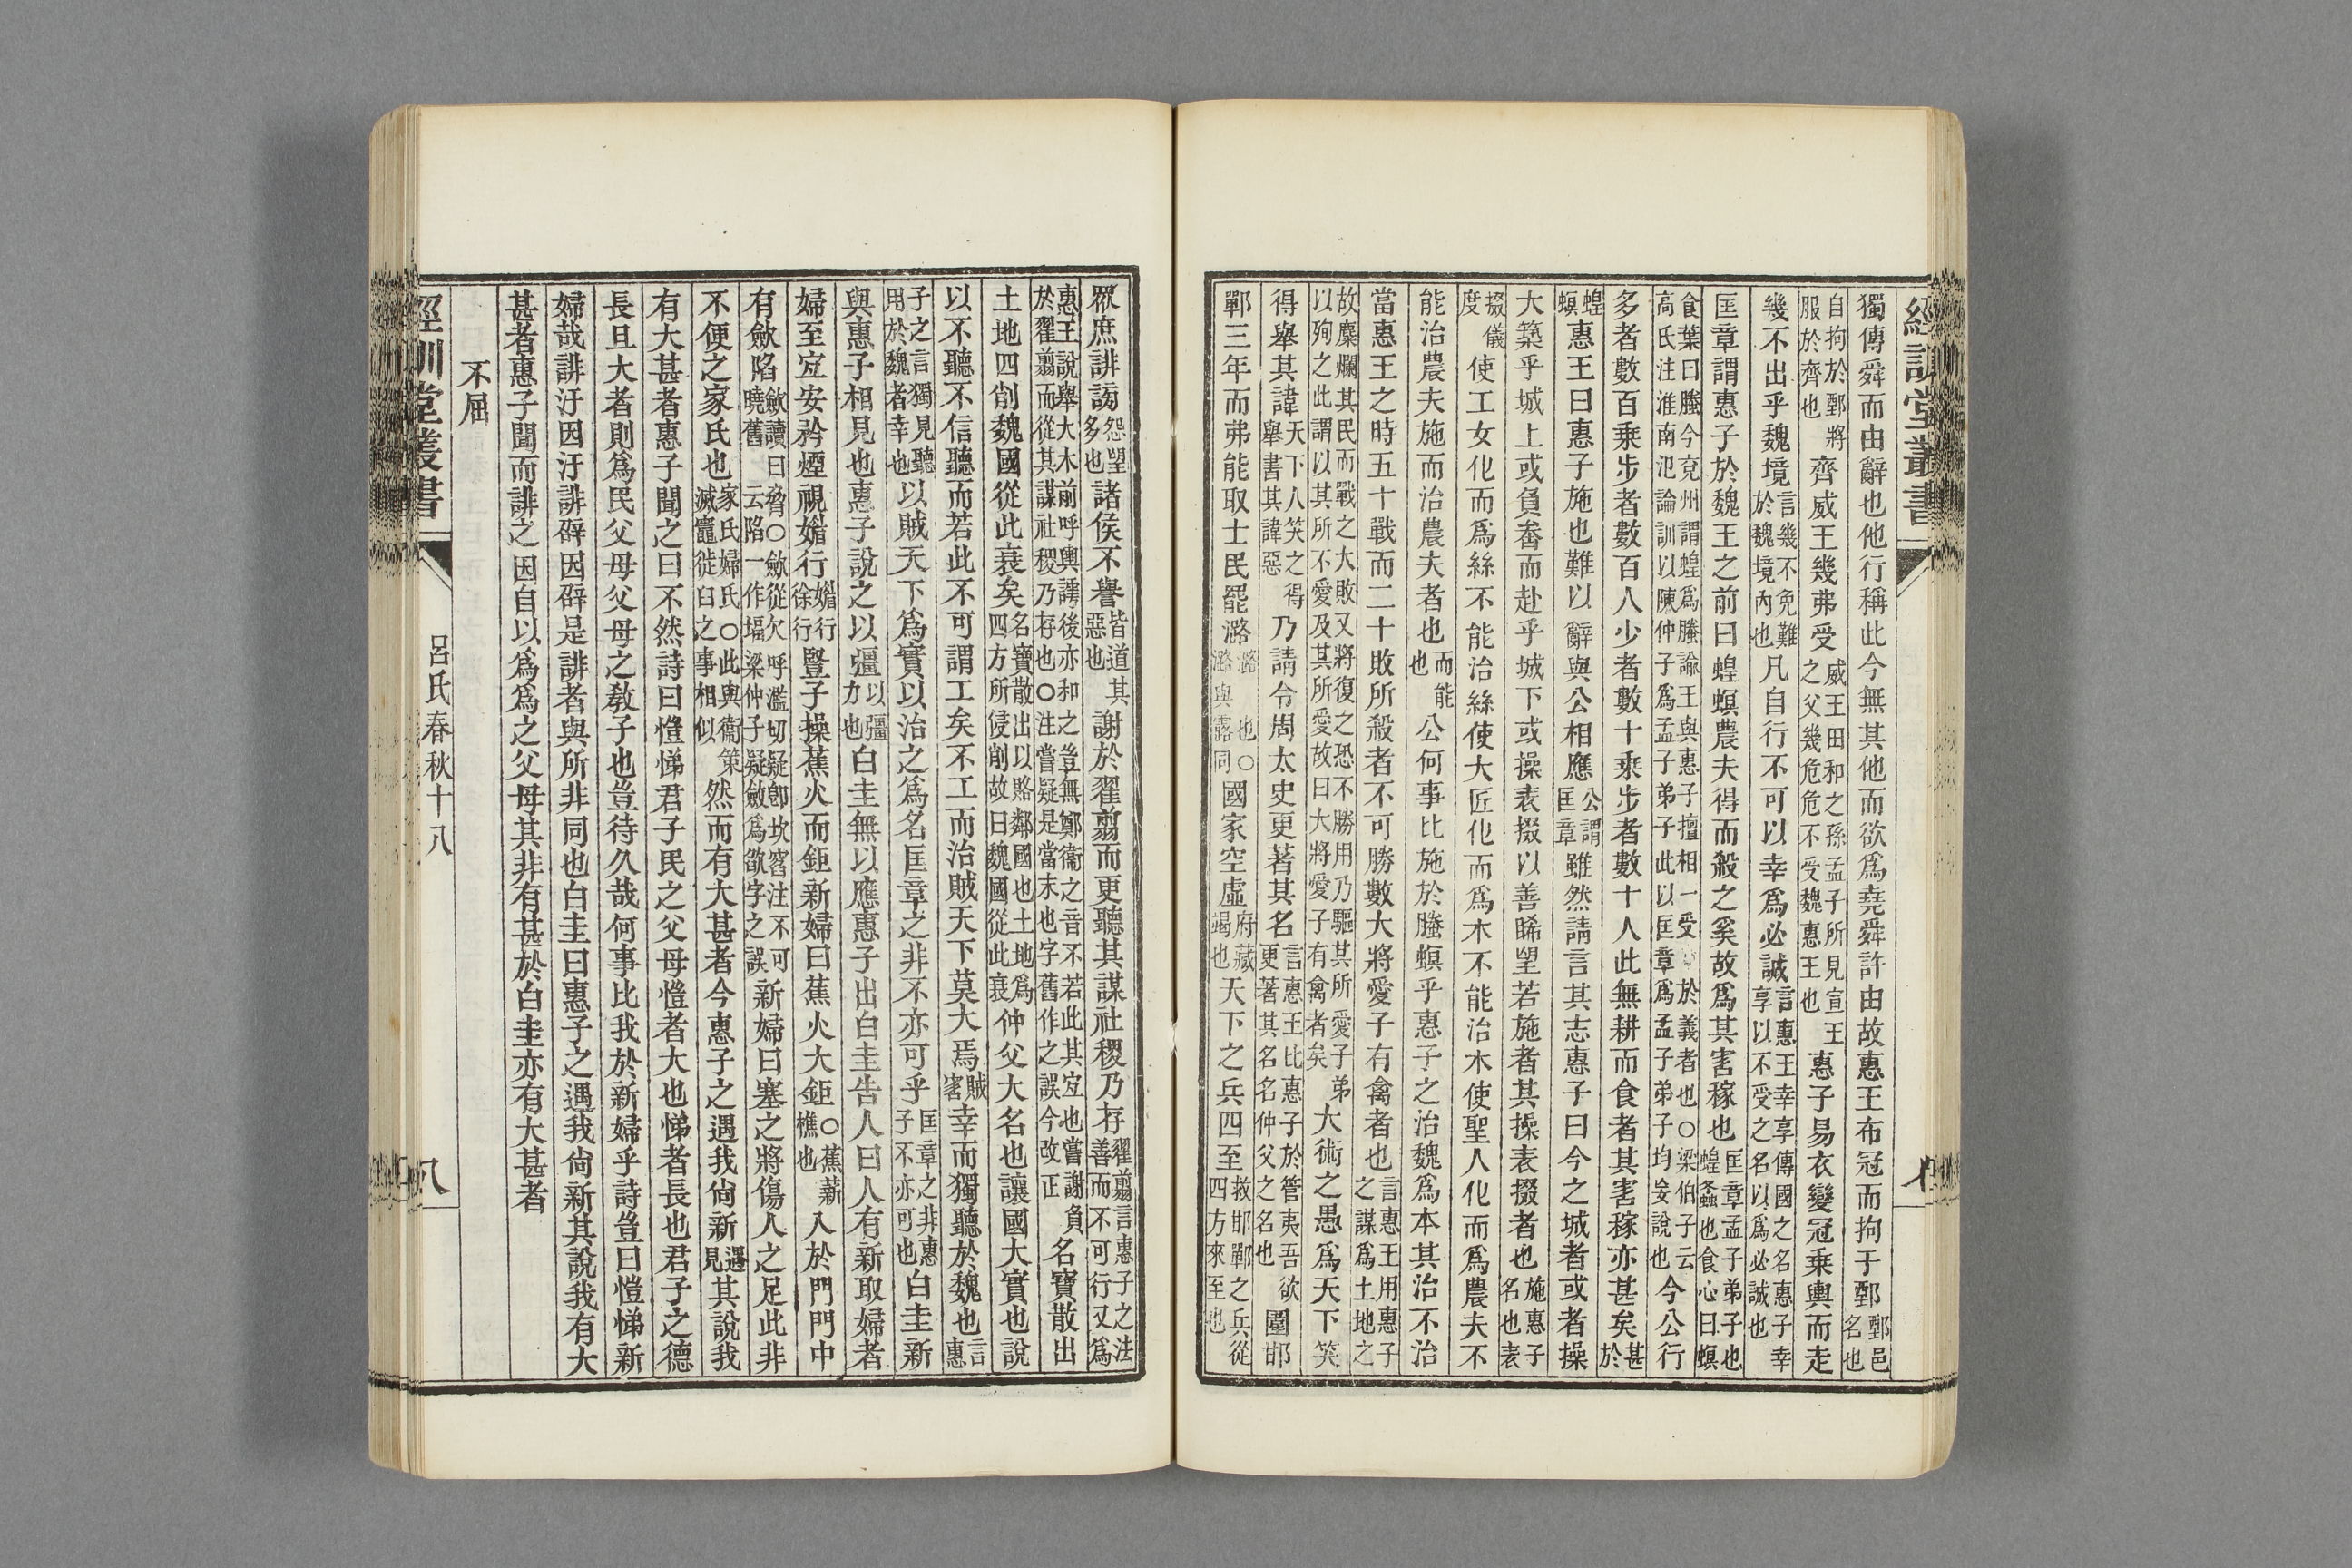 經訓堂叢書
獨傳舜而由辭也他行稱此今無其他而欲爲堯舜許由故惠王布冠而拘于鄄鄄邑名也
自拘於鄄將服於齊也齊威王幾弗受威王田和之孫孟子所見宣王之父幾危危不受魏惠王也惠子易衣變冠乘輿而走
幾不出乎魏境言幾不免難於魏境內也凡自行不可以幸爲必誠言惠王幸享傳國之名惠子幸享以不受之名以爲必誠也
匡章謂惠子於魏王之前曰蝗螟農夫得而殺之奚故爲其害稼也匡章孟子弟子也蝗螽也食心曰螟
食葉曰螣今兗州謂蝗爲螣諭王與惠子擅相一受於義者也○梁伯子云高氏注淮南氾論訓以陳仲子爲孟子弟子此以匡章爲孟子弟子均妄說也今公行
多者數百乘步者數百人少者數十乘步者數十人此無耕而食者其害稼亦甚矣甚於
蝗螟惠王曰惠子施也難以辭與公相應公謂匡章雖然請言其志惠子曰今之城者或者操
大築乎城上或負畚而赴乎城下或操表掇以善睎望若施者其操表掇者也施惠子名也表
掇儀度使工女化而爲絲不能治絲使大匠化而爲木不能治木使聖人化而爲農夫不
能治農夫施而治農夫者也而能也公何事比施於螣螟乎惠子之治魏爲本其治不治
當惠王之時五十戰而二十敗所殺者不可勝數大將愛子有禽者也言惠王用惠子之謀爲土地之
故糜爛其民而戰之大敗又將復之恐不勝用乃驅其所愛子弟以殉之此謂以其所不愛及其所愛故曰大將愛子有禽者矣大術之愚爲天下笑
得舉其諱天下人笑之得舉書其諱惡乃請令周太史更著其名言惠王比惠子於管夷吾欲更著其名名仲父之名也圍邯
鄲三年而弗能取士民罷潞潞也○潞與露同國家空虛府藏竭也天下之兵四至救邯鄲之兵從四方來至也
眾庶誹謗怨望多也諸侯不譽皆道其惡也謝於翟翦而更聽其謀社稷乃存翟翦言惠子之法善而不可行又爲
惠王說舉大木前呼輿謣後亦和之豈無鄭衞之音不若此其宜也嘗謝負於翟翦而從其謀社稷乃存也○注嘗疑是當末也字舊作之誤今改正名寶散出
土地四削魏國從此衰矣名寶散出以賂鄰國也土地爲四方所侵削故曰魏國從此衰仲父大名也讓國大實也說
以不聽不信聽而若此不可謂工矣不工而治賊天下莫大焉賊害幸而獨聽於魏也言惠
子之言獨見聽用於魏者幸也以賊天下爲實以治之爲名匡章之非不亦可乎匡章之非惠子不亦可也白圭新
與惠子相見也惠子說之以彊以彊力也白圭無以應惠子出白圭告人曰人有新取婦者
婦至宜安矜煙視媚行媚行徐行豎子操蕉火而鉅新婦曰蕉火大鉅○蕉薪樵也入於門門中
有歛陷歛讀曰脅○歛從欠呼濫切疑卽坎窞注不可曉舊云陷一作塌梁仲子疑斂爲欲字之誤新婦曰塞之將傷人之足此非
不便之家氏也家氏婦氏○此與衞策滅竈徙臼之事相似然而有大甚者今惠子之遇我尙新遇見其說我
有大甚者惠子聞之曰不然詩曰愷悌君子民之父母愷者大也悌者長也君子之德
長且大者則爲民父母父母之敎子也豈待久哉何事比我於新婦乎詩豈曰愷悌新
婦哉誹汙因汙誹辟因辟是誹者與所非同也白圭曰惠子之遇我尙新其說我有大
甚者惠子聞而誹之因自以爲爲之父母其非有甚於白圭亦有大甚者
不屈
經訓堂叢書
呂氏春秋十八
八